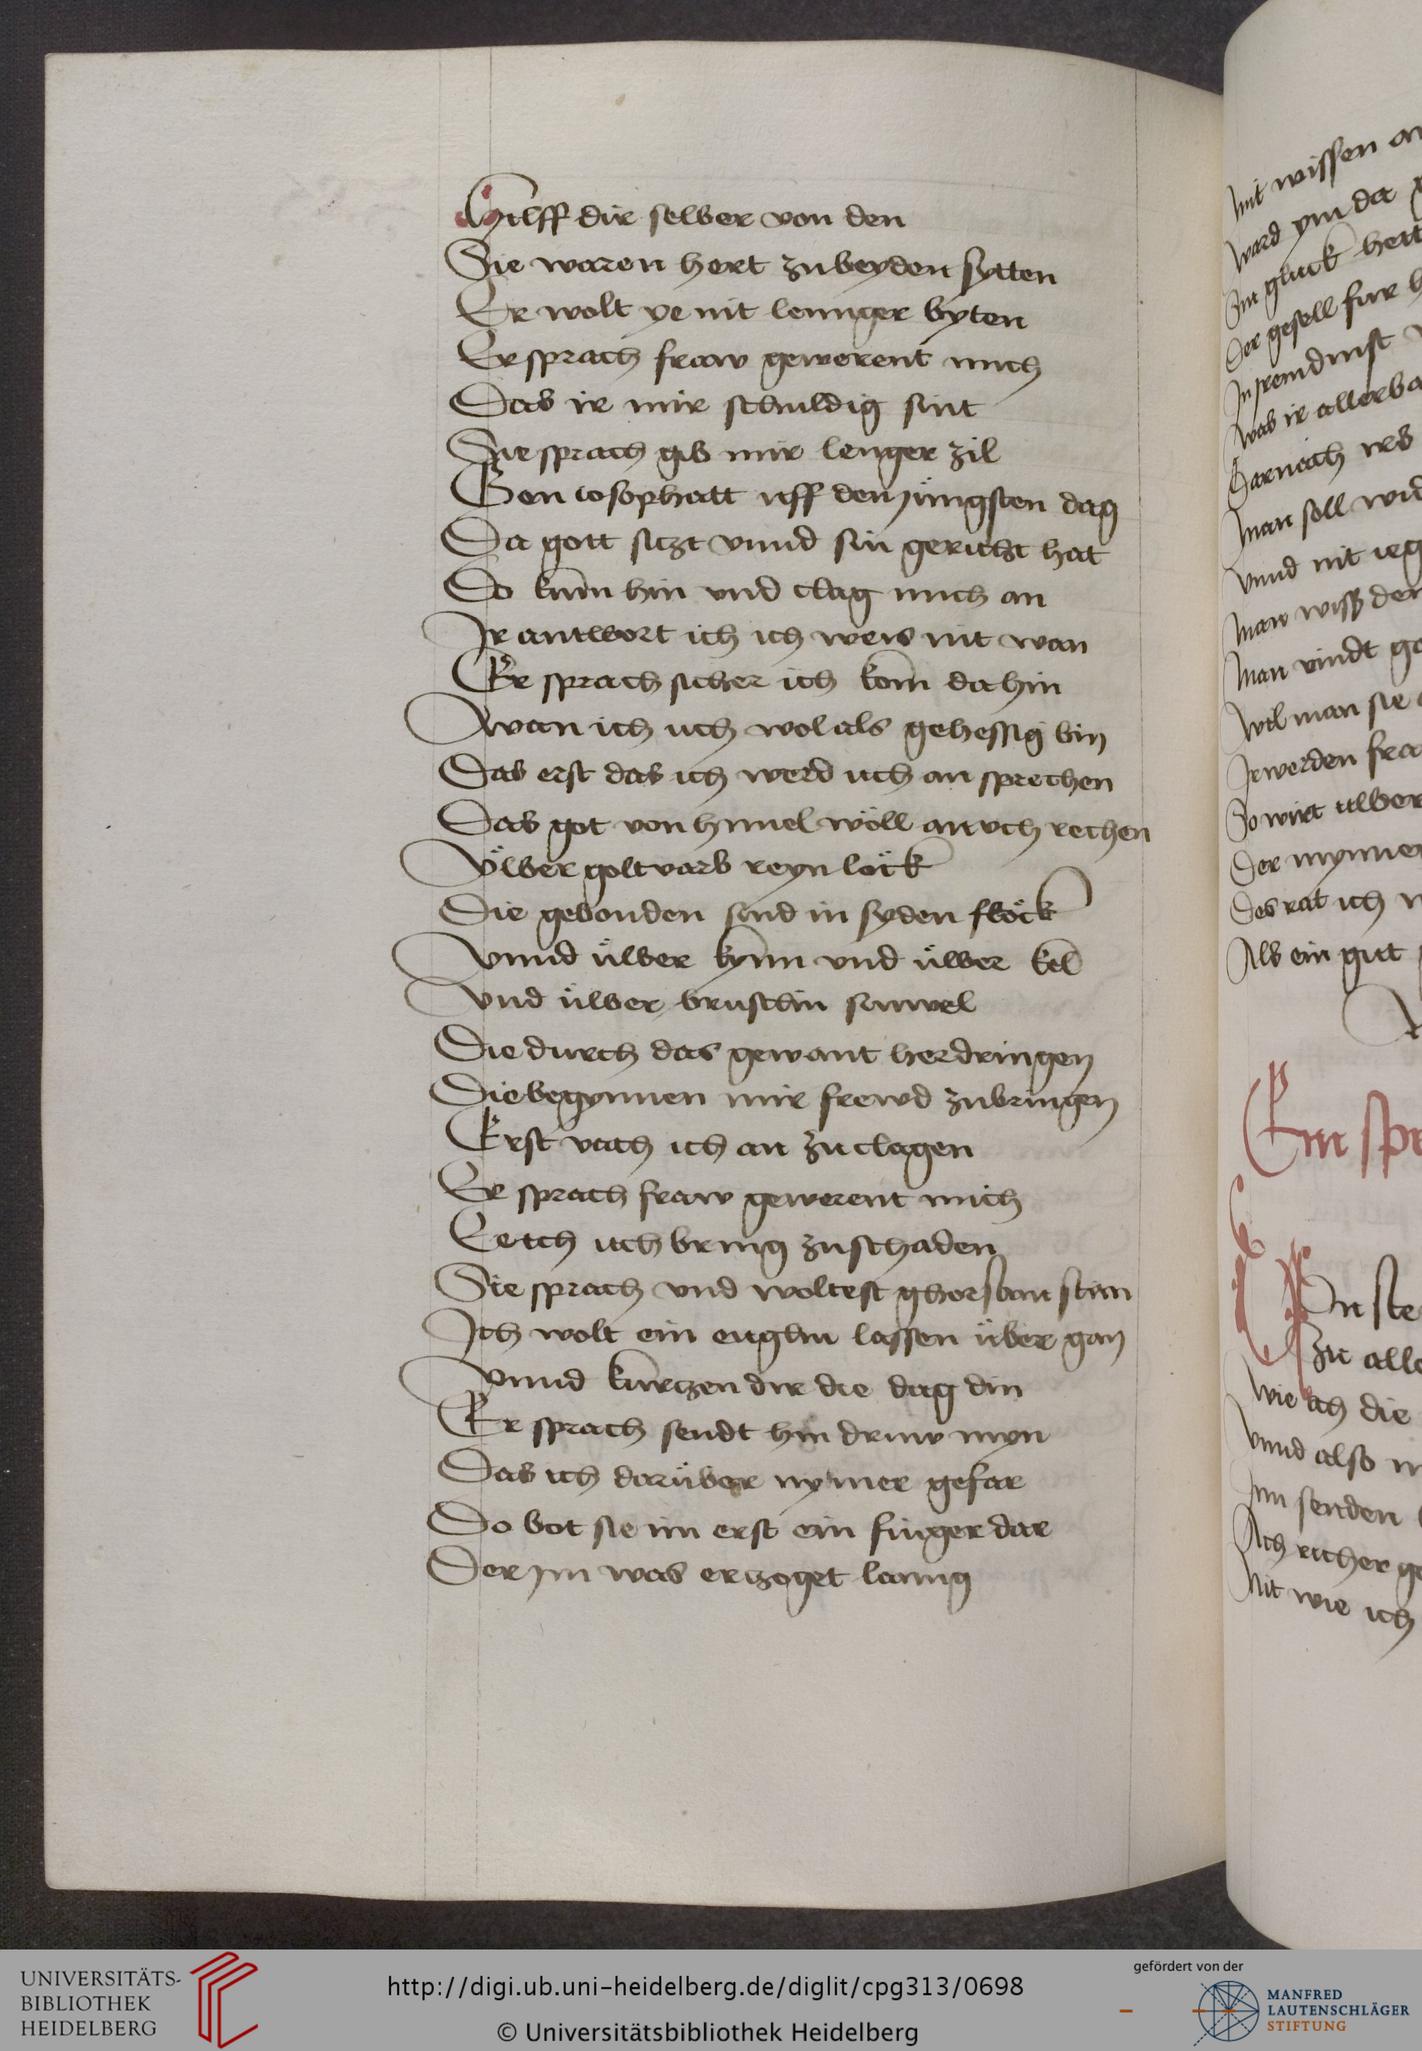 Hilff dir selber von den
Sie waren hert zubeyden sytten
Er wolt ye nit lennger byten
Er sprach fraw gewerent mich
Das ir mir schuldig sint
Sie sprach gib mir lenger zil
Gen iosophatt uff den jüngsten dag
Da gott sitzt vnnd sin gericht hat
Do kum hin vnd clag mich an
Ir antwort ich ich weis nit wan
Er sprach sicher ich kom da hin
Wan ich uch wol als gehessig bin
Das erst das ich werd uch an sprechen
Das got von himel wöll an vch rechen
Üwer goltvarb reyn löck
Die gebonden sind in syden flöck
Vnnd üwer kynn vnd üwer kel
Vnd üwer brustlin sinwel
Die durch das gewant her dringen
Die begynnen mir frewd zubringen
Erst vach ich an zu clagen
Er sprach fraw gewerent mich
Ee ich uch bring zuschaden
Sie sprach vnd woltest ghorsam sein
Ich wolt ein euglin lassen über gan
Vnnd kurtzen dir die dag din
Er sprach sendt hin druw myn
Das ich darüber nymer gefar
Do bot sie im erst ein finger dar
Der im was erzoget lanng
mit wissen
ward ym der
Im gluck hett
Der gesell fur
was ir aller
Darnach
man soll
vnnd nit
man wiß den
man vindt
wil man sie
Ir werden
So wirt uwer
Der mynner
Des rat ich
Als ein gut
Ein
zu
wie ich die
vnnd also
Im senden
Ach richer
Nit wie ich
UNIVERSITÄTS-
BIBLIOTHEK
HEIDELBERG
http://digi.ub.uni-heidelberg.de/diglit/cpg313/0698
© Universitätsbibliothek Heidelberg
gefördert von der
MANFRED
LAUTENSCHLÄGER
STIFTUNG